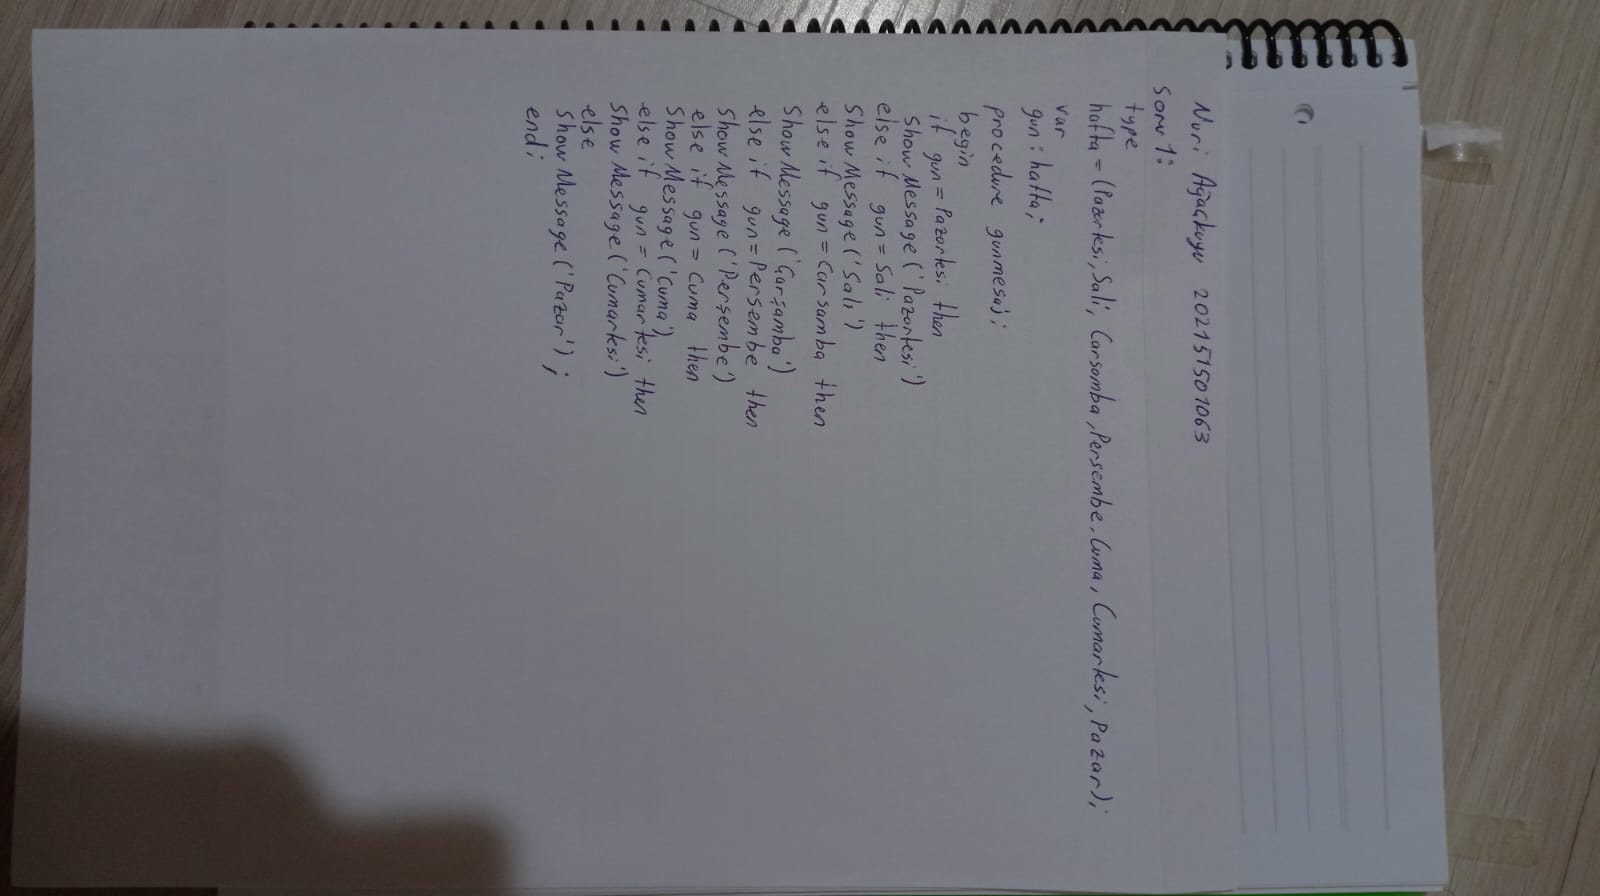 Nuri Ağaçkuyu 202151501063
Soru 1:
type
hafta = (Pazartesi, Sali, Carsamba, Persembe, Cuma, Cumartesi, Pazar);
var
gun : hafta;
procedure gunmesaj;
begin
if gun = Pazartesi then
ShowMessage ('Pazartesi')
else if gun = Sali then
ShowMessage ('Sali')
else if gun = Carsamba then
ShowMessage ('Çarşamba')
else if gun = Persembe then
ShowMessage ('Perşembe')
else if gun = Cuma then
ShowMessage ('Cuma')
else if gun = Cumartesi then
ShowMessage ('Cumartesi')
else
ShowMessage ('Pazar');
end;